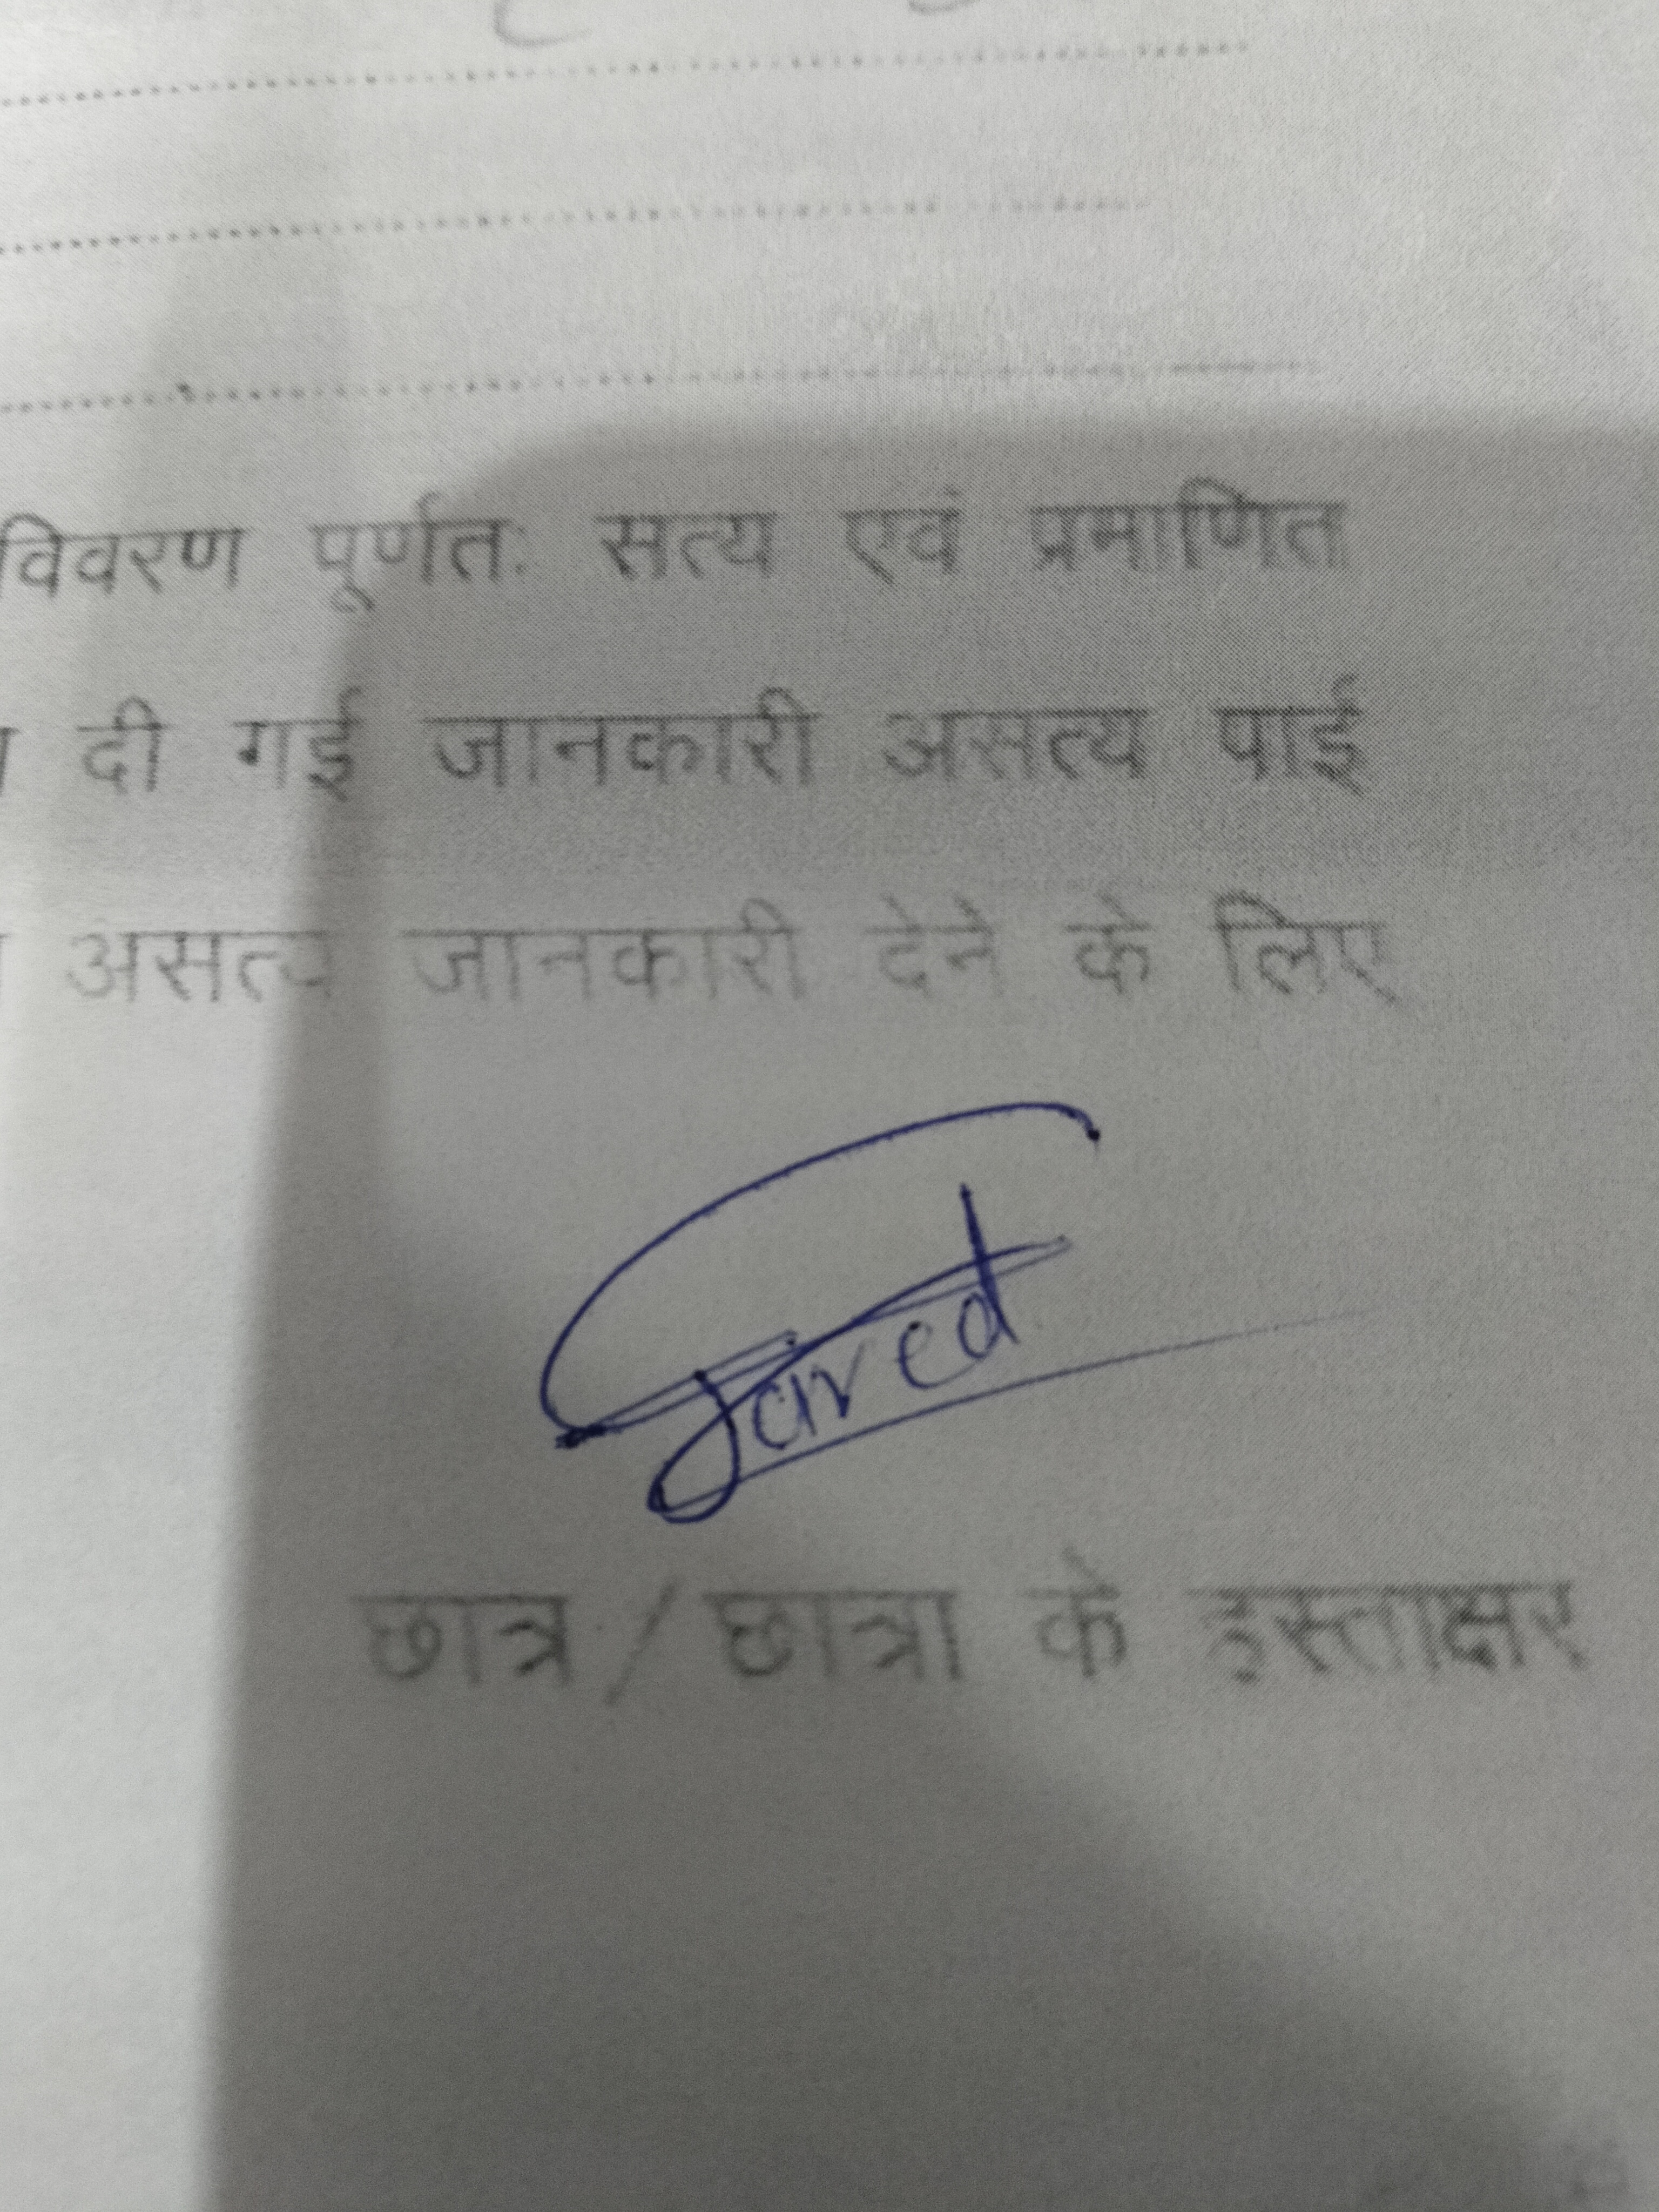 विवरण पूर्णतः सत्य एवं प्रमाणित
दी गई जानकारी असत्य पाई
असत्य जानकारी देने के लिए
Javed
छात्र / छात्रा के हस्ताक्षर